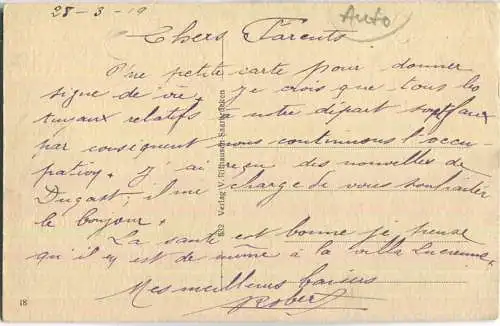 28-3-19
Auto
Chers Parents
Une petite carte pour donner
signe de vie. Je crois que tous les
tuyaux relatifs à notre départ sont faux
par conséquent nous continuons l'occu-
pation. J'ai reçu des nouvelles de
Dugast, il me charge de vous souhaiter
le bonjour.
La santé est bonne je pense
qu'il en est de même à la villa Lucienne.
Mes meilleurs baisers
Robert
802 Verlag V. Rifthausen Saarbrücken
18